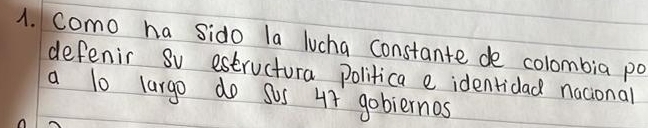 1. Como ha sido la lucha constante de colombia po
defenir su estructura politica e identidad nacional
a lo largo do sus 47 gobiernos